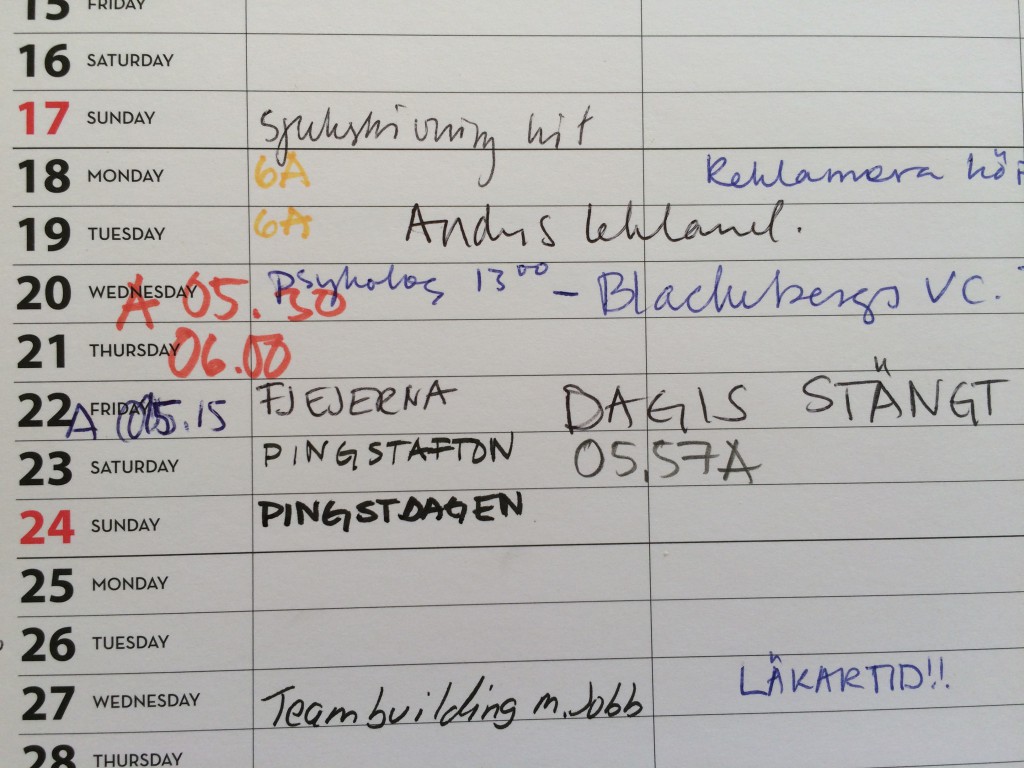 15 FRIDAY
16 SATURDAY
17 SUNDAY sjukskrivning hit
18 MONDAY 6A Reklamera
19 TUESDAY 6A Andys lekland.
20 WEDNESDAY A 05.30 Psykolog 13⁰⁰ - Blackebergs VC.
21 THURSDAY 06.00
22 FRIDAY A 05.15 FJEJERNA DAGIS STÄNGT
23 SATURDAY PINGSTAFTON 05.57A
24 SUNDAY PINGSTDAGEN
25 MONDAY
26 TUESDAY
27 WEDNESDAY Teambuilding m. Jobb LÄKARTID!!
28 THURSDAY